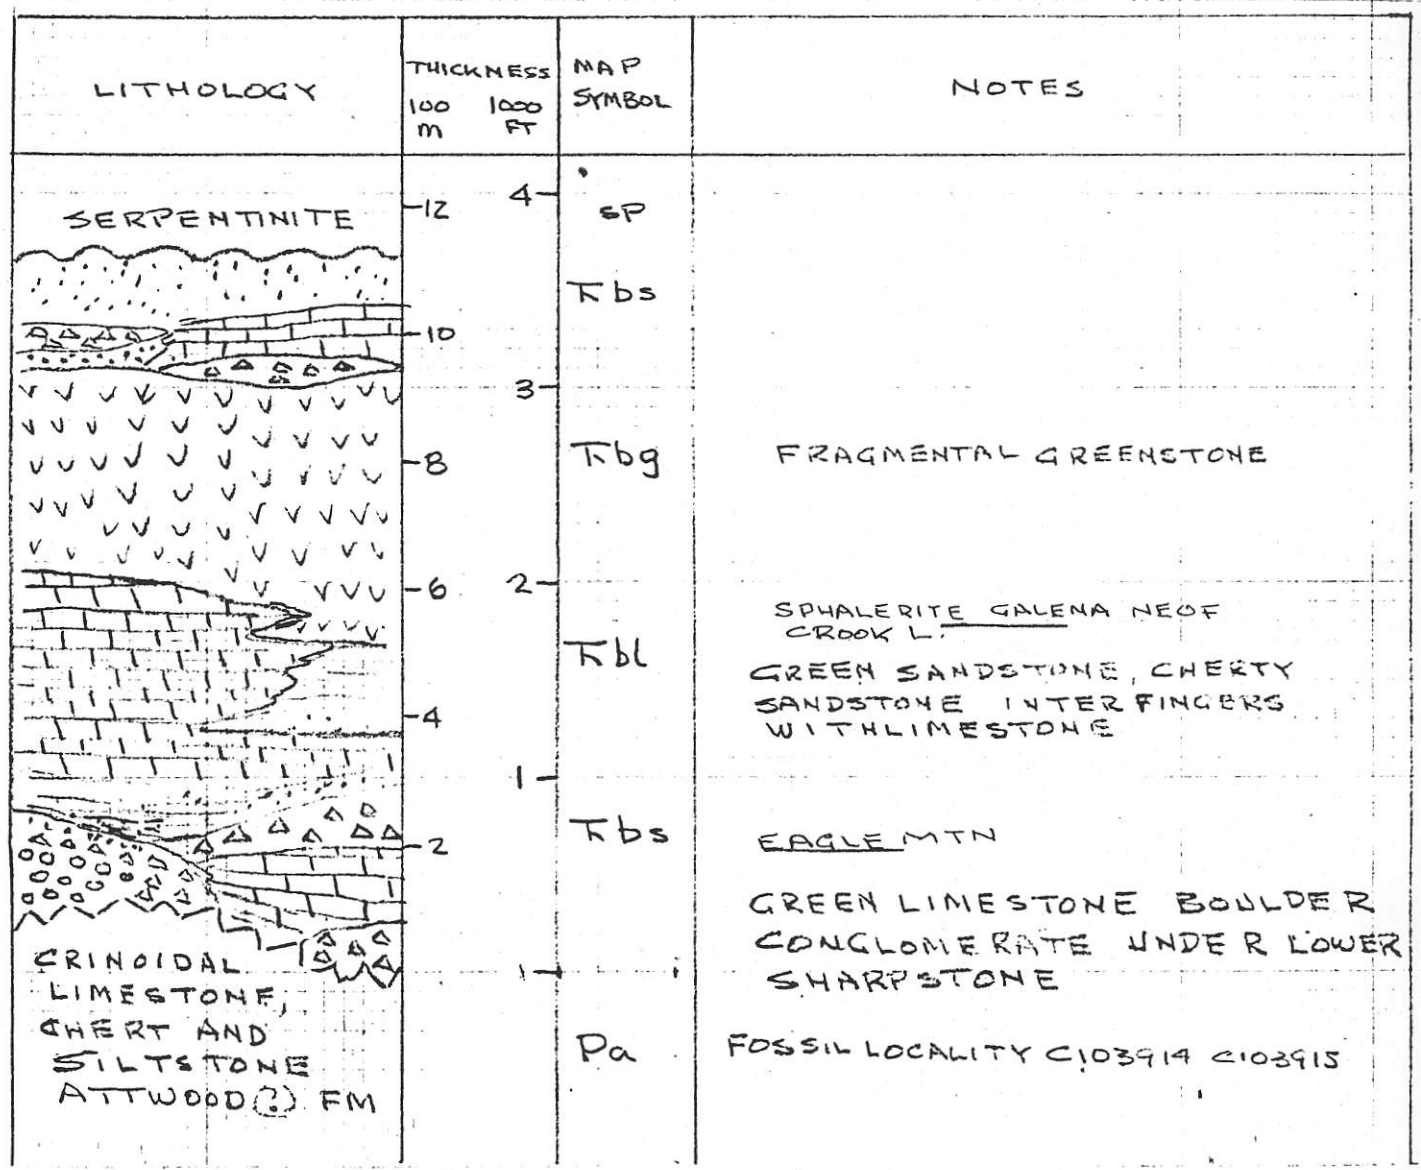 LITHOLOGY
THICKNESS
100 1000
m FT
MAP
SYMBOL
NOTES
SERPENTINITE
12
4
SP
Ꞃbs
10
3
8
Ꞃbg
FRAGMENTAL GREENSTONE
6
2
SPHALERITE GALENA NE OF
CROOK L.
Ꞃbl
GREEN SANDSTONE, CHERTY
SANDSTONE INTERFINGERS
WITH LIMESTONE
4
1
Ꞃbs
2
EAGLE MTN
GREEN LIMESTONE BOULDER
CONGLOMERATE UNDER LOWER
SHARPSTONE
CRINOIDAL
LIMESTONE,
CHERT AND
SILTSTONE
ATTWOOD(?) FM
Pa
FOSSIL LOCALITY C103914 C103915